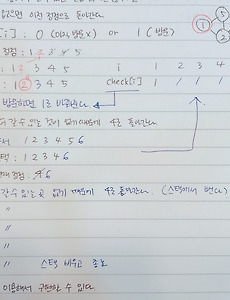 없으면 이전 정점으로 돌아간다.
[i] : 0 (아직 방문 X) or 1 (방문)
정점 : 1 2 3 4 5
: 1 2 3 4 5 i 1 2 3 4
: 1 2 3 4 5 check[i] 1 1 1 1
방문하면 1로 바뀐다.
갈 수 있는 곳이 없기 때문에 4로 돌아간다.
1 2 3 4 5 6
택 : 1 2 3 4 6
정점 : 6
갈 수 있는 곳 없기 때문에 4로 돌아간다. (스택에서 뺀다)
"
"
"
" 스택 비우고 종료
이용해서 구현할 수 있다.